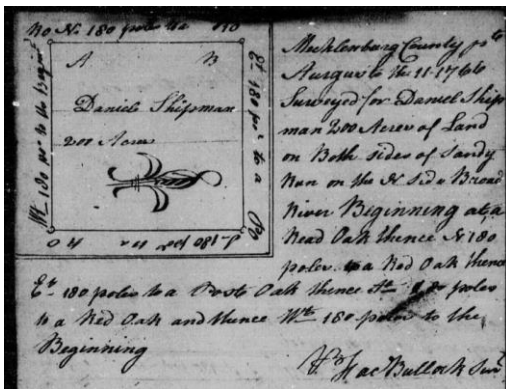 Ro N. 180 poles to a RO
A B
Daniel Shipman
200 Acres
Et. 180 po. to a Po
S. 180 poles to a R O
Wt. 180 po. to the Begin
Mecklenburg County
August the 11 1766
Surveyed for Daniel Ship
man 200 Acres of Land
on Both sides of Sandy
Run on the N Side Broad
River Beginning at a
Read Oak thence N. 180
poles to a Red Oak thence
Et. 180 poles to a Poste Oak thence poles
to a Red Oak and thence Wt. 180 poles to the
Beginning
Zac Bullock Sur